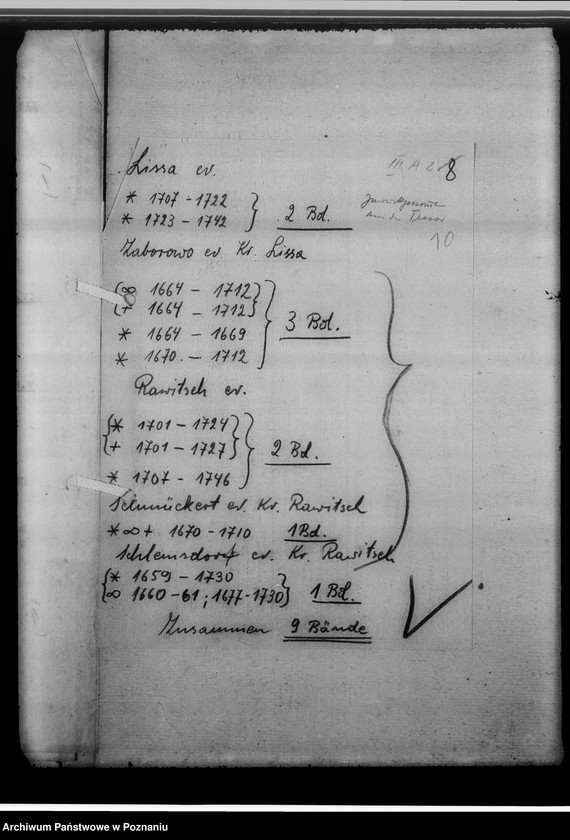 Lissa ev.
III A 2 8
* 1707 - 1722
* 1723 - 1742 } 2 Bd.
10
Zaborowo ev. Kr. Lissa
{ ∞ 1664 - 1712 }
{ + 1664 - 1712 }
* 1664 - 1669
* 1670. - 1712 } 3 Bd.
Rawitsch ev.
{ * 1701 - 1724 }
{ + 1701 - 1727 }
* 1707 - 1746 } 2 Bd.
Schmückert ev. Kr. Rawitsch
* ∞ + 1670 - 1710 1 Bd.
Schlemsdorf ev. Kr. Rawitsch
{ * 1659 - 1730
∞ 1660 - 61 ; 1677 - 1730 } 1 Bd.
Zusammen 9 Bände
Archiwum Państwowe w Poznaniu